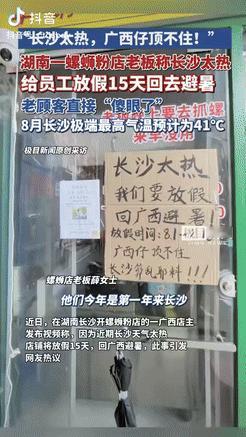 抖音
"长沙太热，广西仔顶不住！"
湖南一螺蛳粉店老板称长沙太热
给员工放假15天回去避暑
老顾客直接“傻眼了”
8月长沙极端最高气温预计为41℃
极目新闻原创采访
长沙太热
我们要放假
回广西避暑
广西仔顶不住
螺蛳店老板薛女士
他们今年是第一年来长沙
近日，在湖南长沙开螺蛳粉店的一广西店主
发布视频称，因为近期长沙天气太热
店铺将放假15天，回广西避暑，此事引发
网友热议